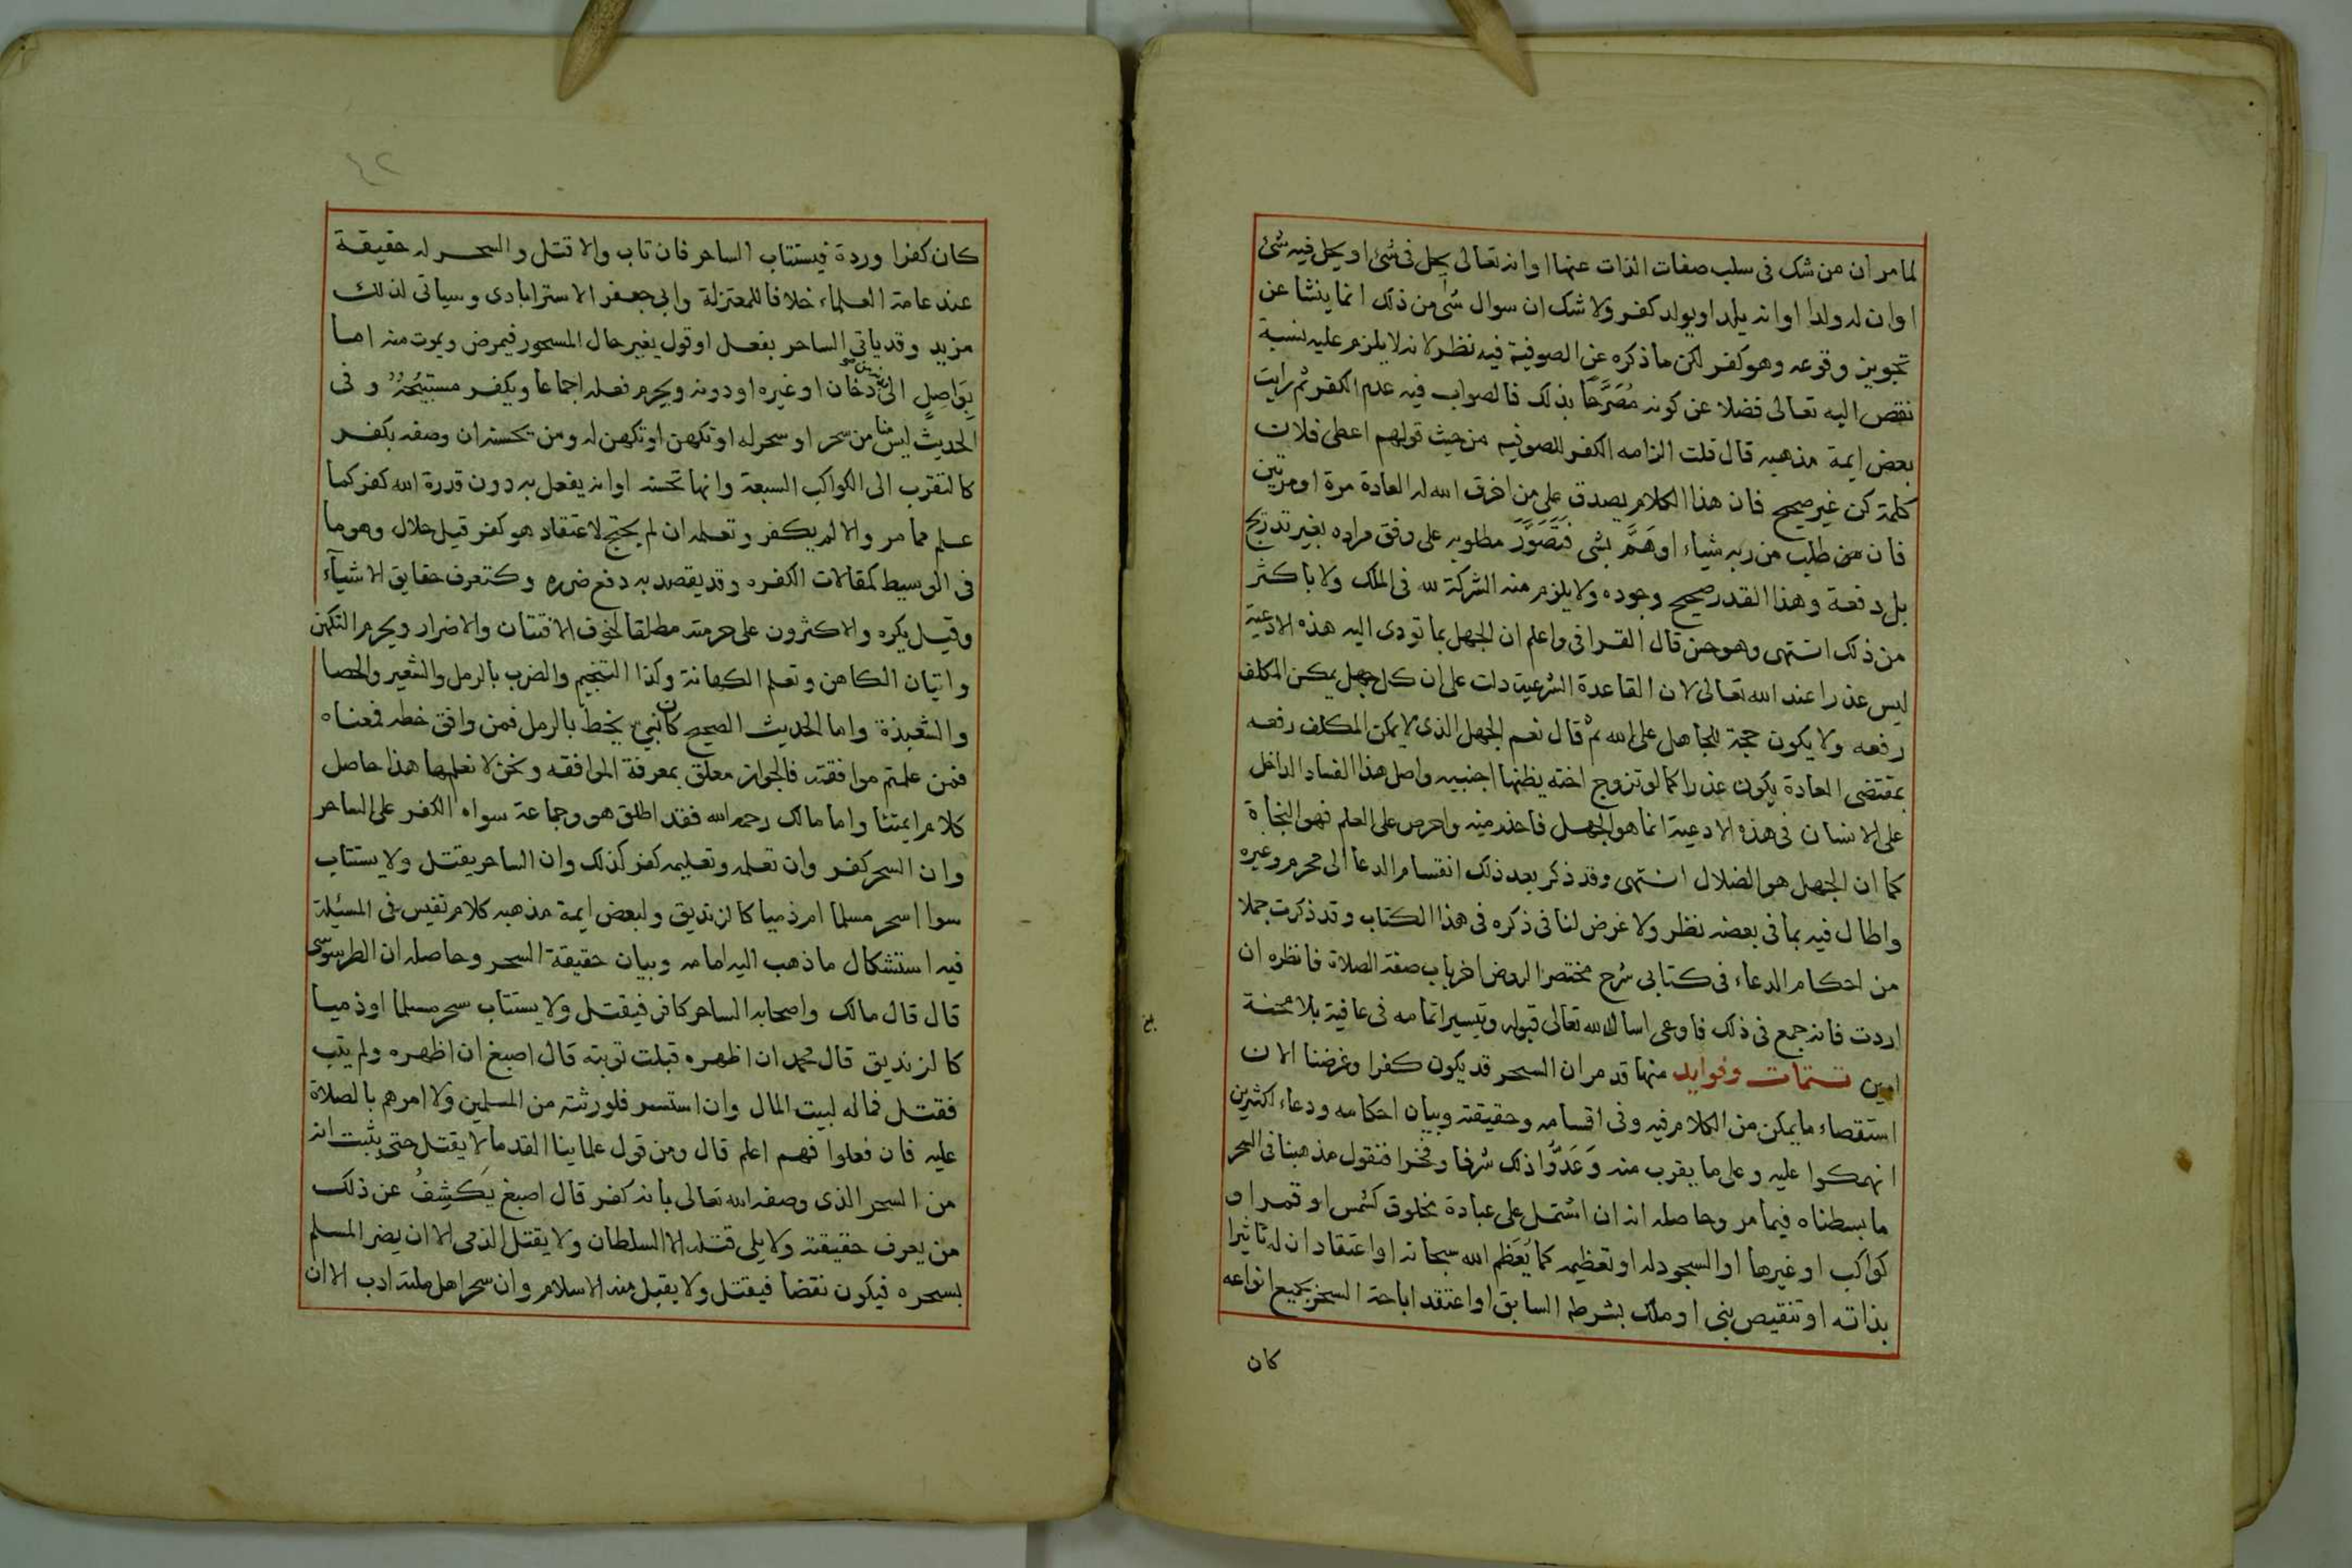 لما مر ان من شك فى سلب صفات الذات عنها او انه تعالى يحل فى شئ او يحل فيه شئ
او ان له ولدا او انه يلد او يولد كفر ولا شك ان سوال شئ من ذلك انما ينشا عن
تجويز وقوعه وهو كفر لكن ما ذكره عن الصوفية فيه نظر لانه لا يلزم عليه نسبة
نقص اليه تعالى فضلا عن كونه مُصَرَّحًا بذلك فالصواب فيه عدم الكفر ثم رايت
بعض ايمة مذهبه قال قلت الزامه الكفر للصوفيه من حيث قولهم اعطى فلان
كلمة كن غير صحيح فان هذا الكلام يصدق على من اخرق الله له العادة مرة او مرتين
فان من طلب من ربه شياء او هَمَّ بشى فَتَصَوَّرَ مطلوبه على وفق مراده بغير تدريج
بل دفعة وهذا القدر صحيح وجوده ولا يلزم منه الشركة لله فى الملك ولا باكثر
من ذلك انتهى وهو حسن قال القرافى واعلم ان الجهل بما تودى اليه هذه الادعية
ليس عذرا عند الله تعالى لان القاعدة الشرعية دلت على ان كل جهل يمكن المكلف
رفعه ولا يكون حجة للجاهل على الله ثم قال نعم الجهل الذى لا يمكن المكلف رفعه
بمقتضى العادة يكون عذرا كما لو تزوج اخته يظنها اجنبيه واصل هذا الفساد الداخل
على الانسان فى هذه الادعية انما هو الجهل فاحذر منه واحرص على العلم فهو النجاة
كما ان الجهل هو الضلال انتهى وقد ذكر بعد ذلك انقسام الدعا الى محرم وغيره
واطال فيه بما فى بعضه نظر ولا غرض لنا فى ذكره فى هذا الكتاب وقد ذكرت جملا
من احكام الدعاء فى كتابى شرح مختصر الروض اخر باب صفة الصلاة فانظره ان
اردت فانه جمع فى ذلك فاوعى اسال الله تعالى قبوله وتيسير اتمامه فى عافية بلا محنة
امين تتمات وفوايد منها قد مر ان السحر قد يكون كفرا وغرضنا الان
استقصاء ما يمكن من الكلام فيه وفى اقسامه وحقيقته وبيان احكامه ودعاء اكثرين
انهمكوا عليه وعلى ما يقرب منه وَعَدُّوا ذلك شرفا وفخرا فنقول مذهبنا فى السحر
ما بسطناه فيما مر وحاصله انه ان اشتمل على عبادة مخلوق كشمس او قمر او
كواكب او غيرها او السجود له او تعظيمه كما يُعَظم الله سبحانه او اعتقاد ان له تاثيرا
بذاته او تنقيص نبى او ملك بشرطه السابق او اعتقد اباحة السحر بجميع انواعه
كان
كان كفرا وردة فيستتاب الساحر فان تاب والا قتل والسحر له حقيقة
عند عامة العلماء خلافا للمعتزلة وابى جعفر الاستراباذى وسياتى لذلك
مزيد وقد ياتى الساحر بفعل او قول يغير حال المسحور فيمرض ويموت منه اما
بِوَاصِلٍ الى دخان او غيره او دونه ويحرم فعله اجماعا ويكفر مستبيحُهُ وفى
الحديث ليس منا من سحر او سحر له او تكهن او تكهن له ومن يحسنه ان وصفه بكفر
كالتقرب الى الكواكب السبعة وانها تحسنه او انه يفعل به دون قدرة الله كفر كما
علم مما مر والا لم يكفر وتعلمه ان لم يحتج لاعتقاد هو كفر قيل حلال وهو ما
فى الوسيط كمقالات الكفره وقد يقصد به دفع ضرره وكتعرف حقايق الاشيآء
وقيل يكره والاكثرون على حرمته مطلقا لخوف الافتتان والاضرار ويحرم التكهن
واتيان الكاهن وتعلم الكهانة وكذا التنجيم والضرب بالرمل والشعير والحصا
والشعبذة واما الحديث الصحيح كان نبى يخط بالرمل فمن وافق خطه فمعناه
فمن علمتم موافقته فالجواز معلق بمعرفة الموافقه ونحن لا نعلمها هذا حاصل
كلام ايمتنا واما مالك رحمه الله فقد اطلق هو وجماعة سواه الكفر على الساحر
وان السحر كفر وان تعلمه وتعليمه كفر كذلك وان الساحر يقتل ولا يستتاب
سوا اسحر مسلما ام ذميا كالزنديق ولبعض ايمة مذهبه كلام نفيس فى المسئلة
فيه استشكال ما ذهب اليه امامه وبيان حقيقة السحر وحاصله ان الطرسوسى
قال قال مالك واصحابه الساحر كافر فيقتل ولا يستتاب سحر مسلما او ذميا
كالزنديق قال محمد ان اظهره قبلت توبته قال اصبغ ان اظهره ولم يتب
فقتل فماله لبيت المال وان استسر فلورثته من المسلمين ولا امرهم بالصلاة
عليه فان فعلوا فهم اعلم قال ومن قول علماينا القدما لا يقتل حتى يثبت انه
من السحر الذى وصفه الله تعالى بانه كفر قال اصبغ يَكشِفُ عن ذلك
من يعرف حقيقته ولا يلى قتله الا السلطان ولا يقتل الذمى الا ان يضر المسلم
بسحره فيكون نقضا فيقتل ولا يقبل منه الاسلام وان سحر اهل ملته ادب الا ان